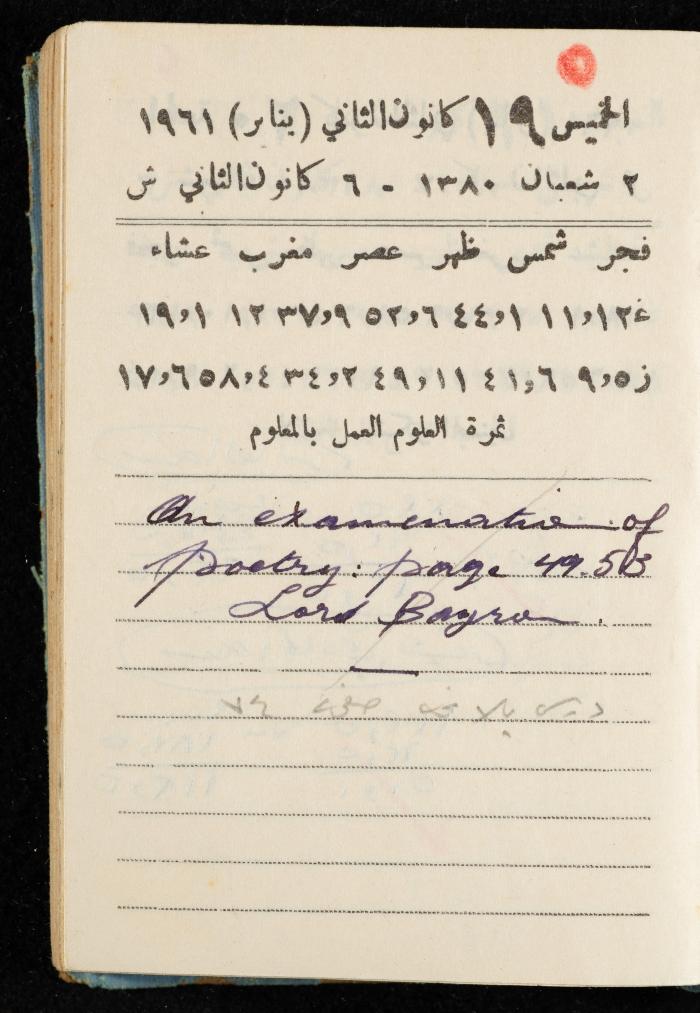 الخميس ١٩ كانون الثاني (يناير) ١٩٦١
٢ شعبان ١٣٨٠ - ٦ كانون الثاني ش
فجر شمس ظهر عصر مغرب عشاء
غ١٢,١١ ١,٤٤ ٦,٥٢ ٩,٣٧ ١٢ ١,١٩
ز٥,٩ ٦,٤١ ١١,٤٩ ٢,٣٤ ٤,٥٨ ٦,١٧
ثمرة العلوم العمل بالمعلوم
An examenation of
poetry: page 49.53
Lord Bayron.